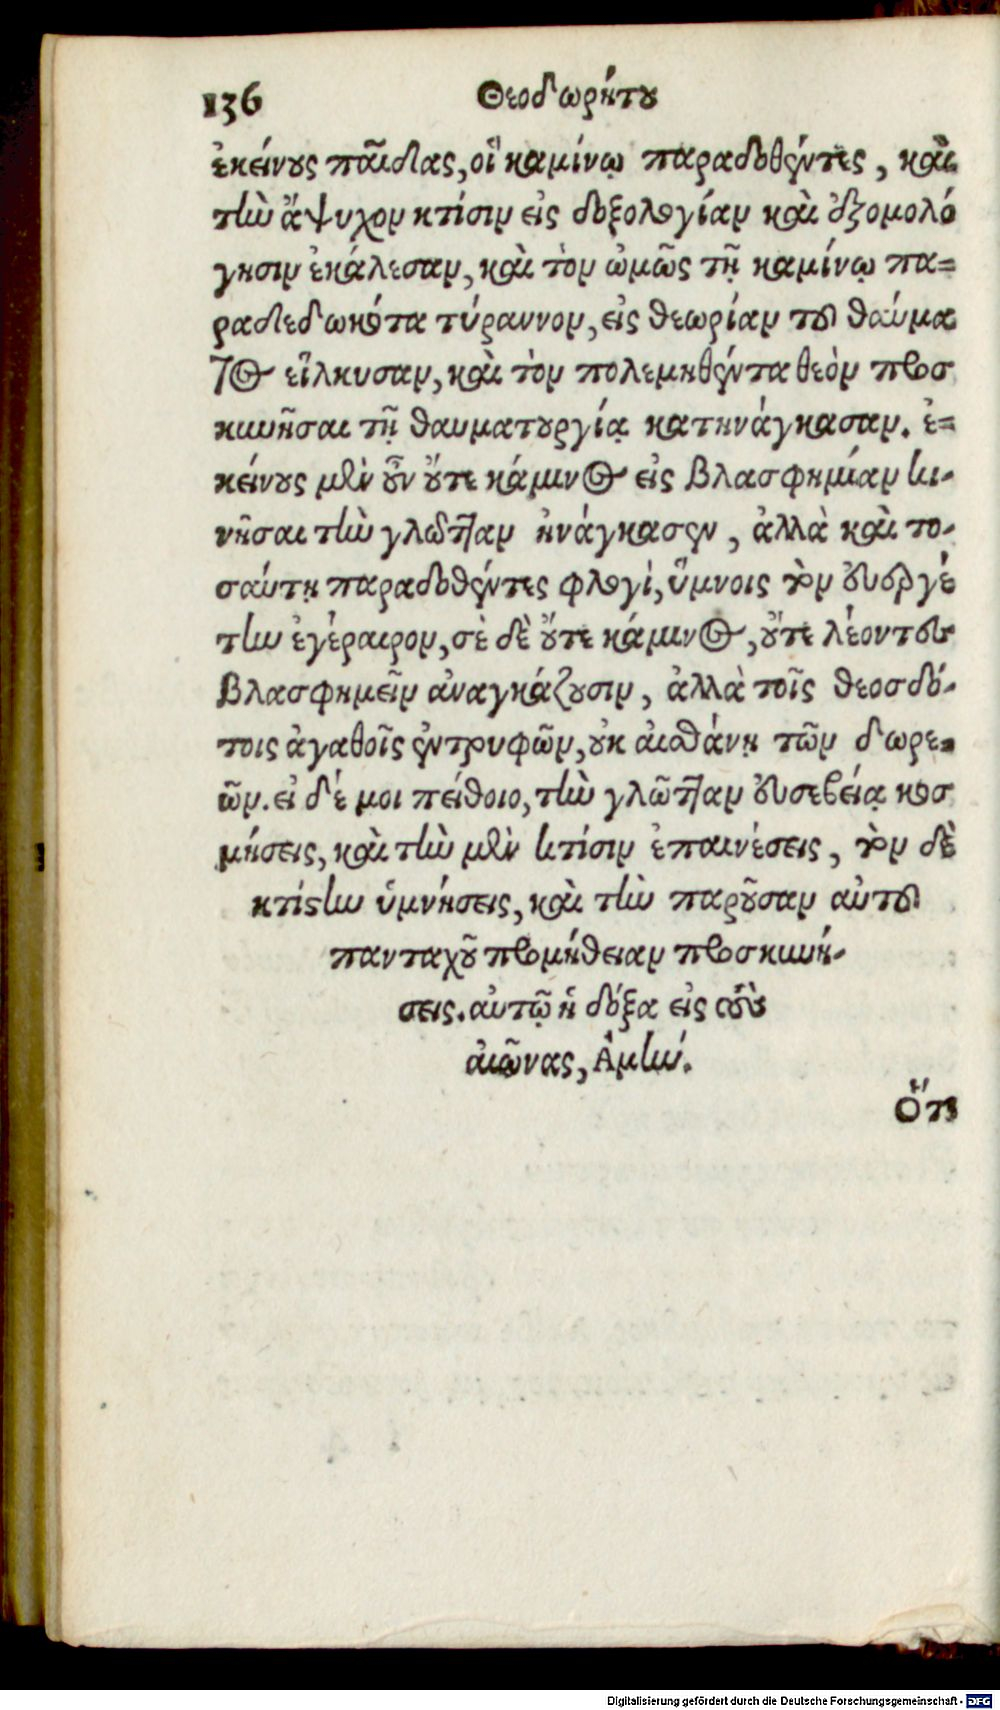 136 Θεοδωρήτου
ἐκείνους παῖδας, οἳ καμίνῳ παραδοθέντες, καὶ
τὴν ἄψυχον κτίσιν εἰς δοξολογίαν καὶ ἐξομολό
γησιν ἐκάλεσαν, καὶ τὸν ὠμῶς τῇ καμίνῳ πα=
ραδεδωκότα τύραννον, εἰς θεωρίαν τοῦ θαύμα
τος εἵλκυσαν, καὶ τὸν πολεμηθέντα θεὸν προσ
κυνῆσαι τῇ θαυματουργίᾳ κατηνάγκασαν. ἐ=
κείνους μὲν οὖν οὔτε κάμινος εἰς βλασφημίαν κι-
νῆσαι τὴν γλῶτταν ἠνάγκασεν, ἀλλὰ καὶ το-
σαύτῃ παραδοθέντες φλογὶ, ὕμνοις τὸν εὐεργέ
την ἐγέραιρον, σὲ δὲ οὔτε κάμινος, οὔτε λέοντες
βλασφημεῖν ἀναγκάζουσιν, ἀλλὰ τοῖς θεοσδό-
τοις ἀγαθοῖς ἐντρυφῶν, οὐκ αἰσθάνῃ τῶν δωρε-
ῶν. εἰ δέ μοι πείθοιο, τὴν γλῶτταν εὐσεβείᾳ κοσ
μήσεις, καὶ τὴν μὲν κτίσιν ἐπαινέσεις, τὸν δὲ
κτίστην ὑμνήσεις, καὶ τὴν παροῦσαν αὐτοῦ
πανταχοῦ προμήθειαν προσκυνή-
σεις. αὐτῷ ἡ δόξα εἰς τοὺς
αἰῶνας, Ἀμήν.
Ὅτι
Digitalisierung gefördert durch die Deutsche Forschungsgemeinschaft - DFG